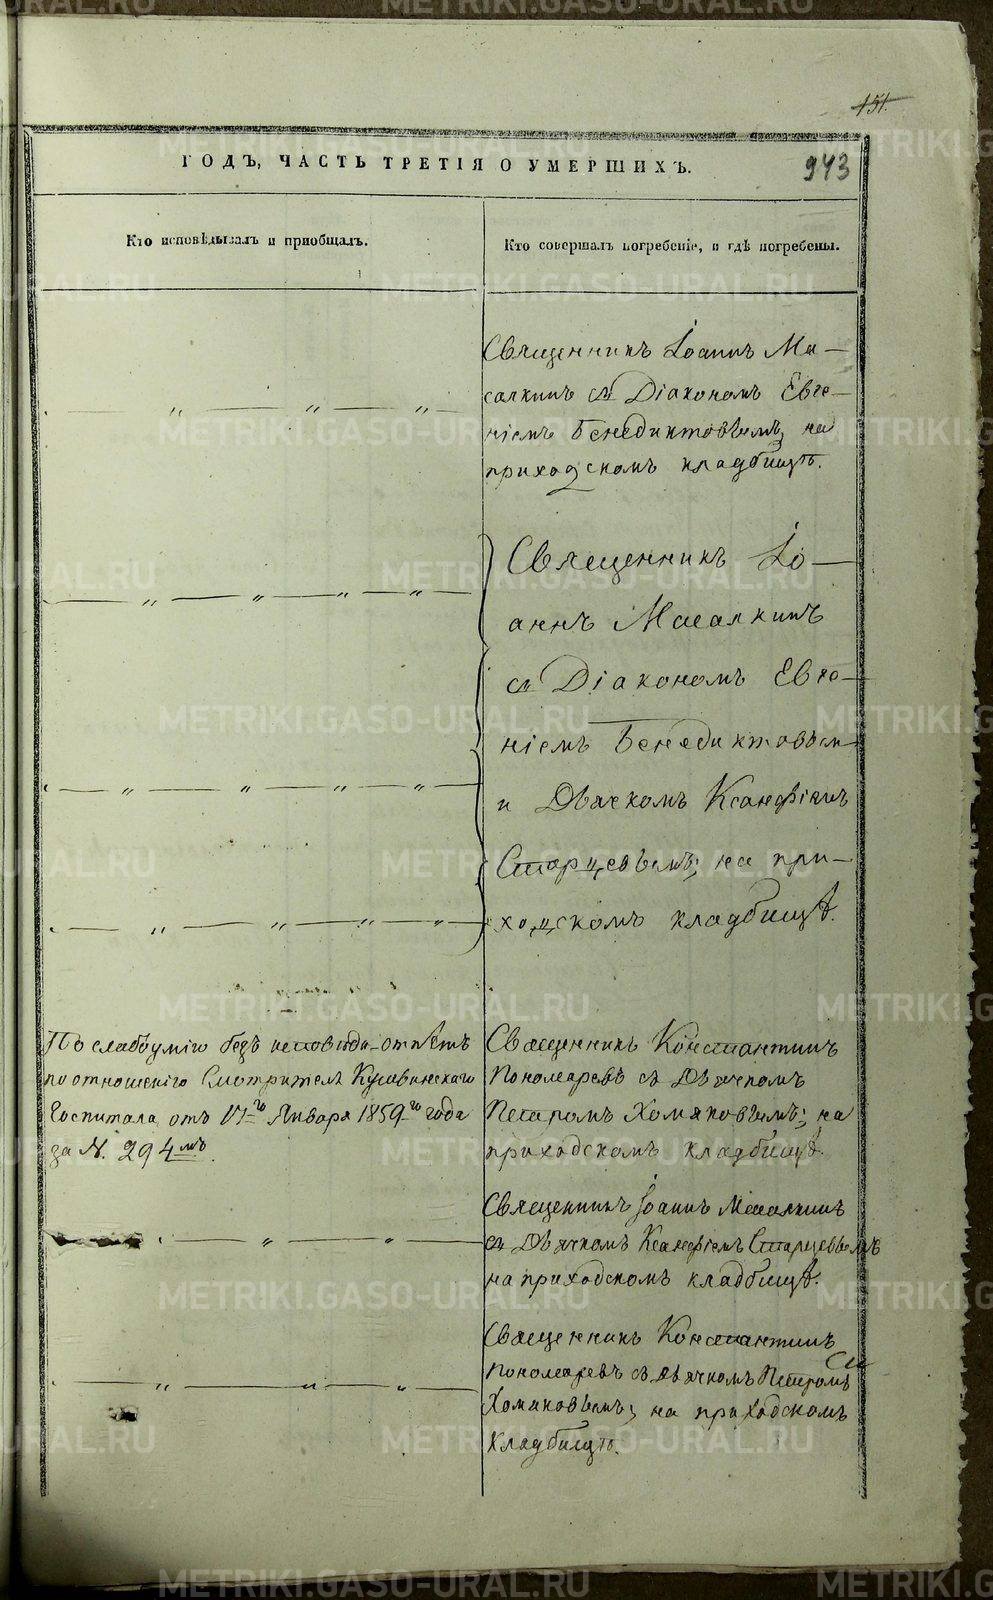 151.
ГОДЪ, ЧАСТЬ ТРЕТІЯ О УМЕРШИХЪ.
943
Кто исповѣдывалъ и пріобщалъ.
Кто совершалъ погребеніе, и гдѣ погребены.
Священникъ Іоаннъ Ма-
салкинъ съ Діакономъ Евге-
ніемъ Бенедиктовымъ, на
приходскомъ кладбищѣ.
Священникъ Іо-
аннъ Масалкинъ
съ Діакономъ Евге-
ніемъ Бенедиктовым
и Дьячкомъ Ксанфіемъ
Старцевымъ; на при-
ходскомъ кладбищѣ.
По слабоумію безъ исповѣди отпѣтъ
по отношенію Смотрителя Кушвинскаго
Госпиталя, отъ 17-го Января 1859го года
за №. 294мъ.
Священникъ Константинъ
Пономаревъ съ Дьячкомъ
Петромъ Хомяковымъ; на
приходскомъ кладбищѣ.
Священникъ Іоаннъ Масалкинъ
съ Дьячкомъ Ксанфіемъ Старцевымъ
на приходскомъ кладбищѣ.
Священникъ Константинъ
Пономаревъ съ Дьячкомъ Петромъ
Хомяковымъ; на приходскомъ
кладбищѣ.
METRIKI.GASO-URAL.RU